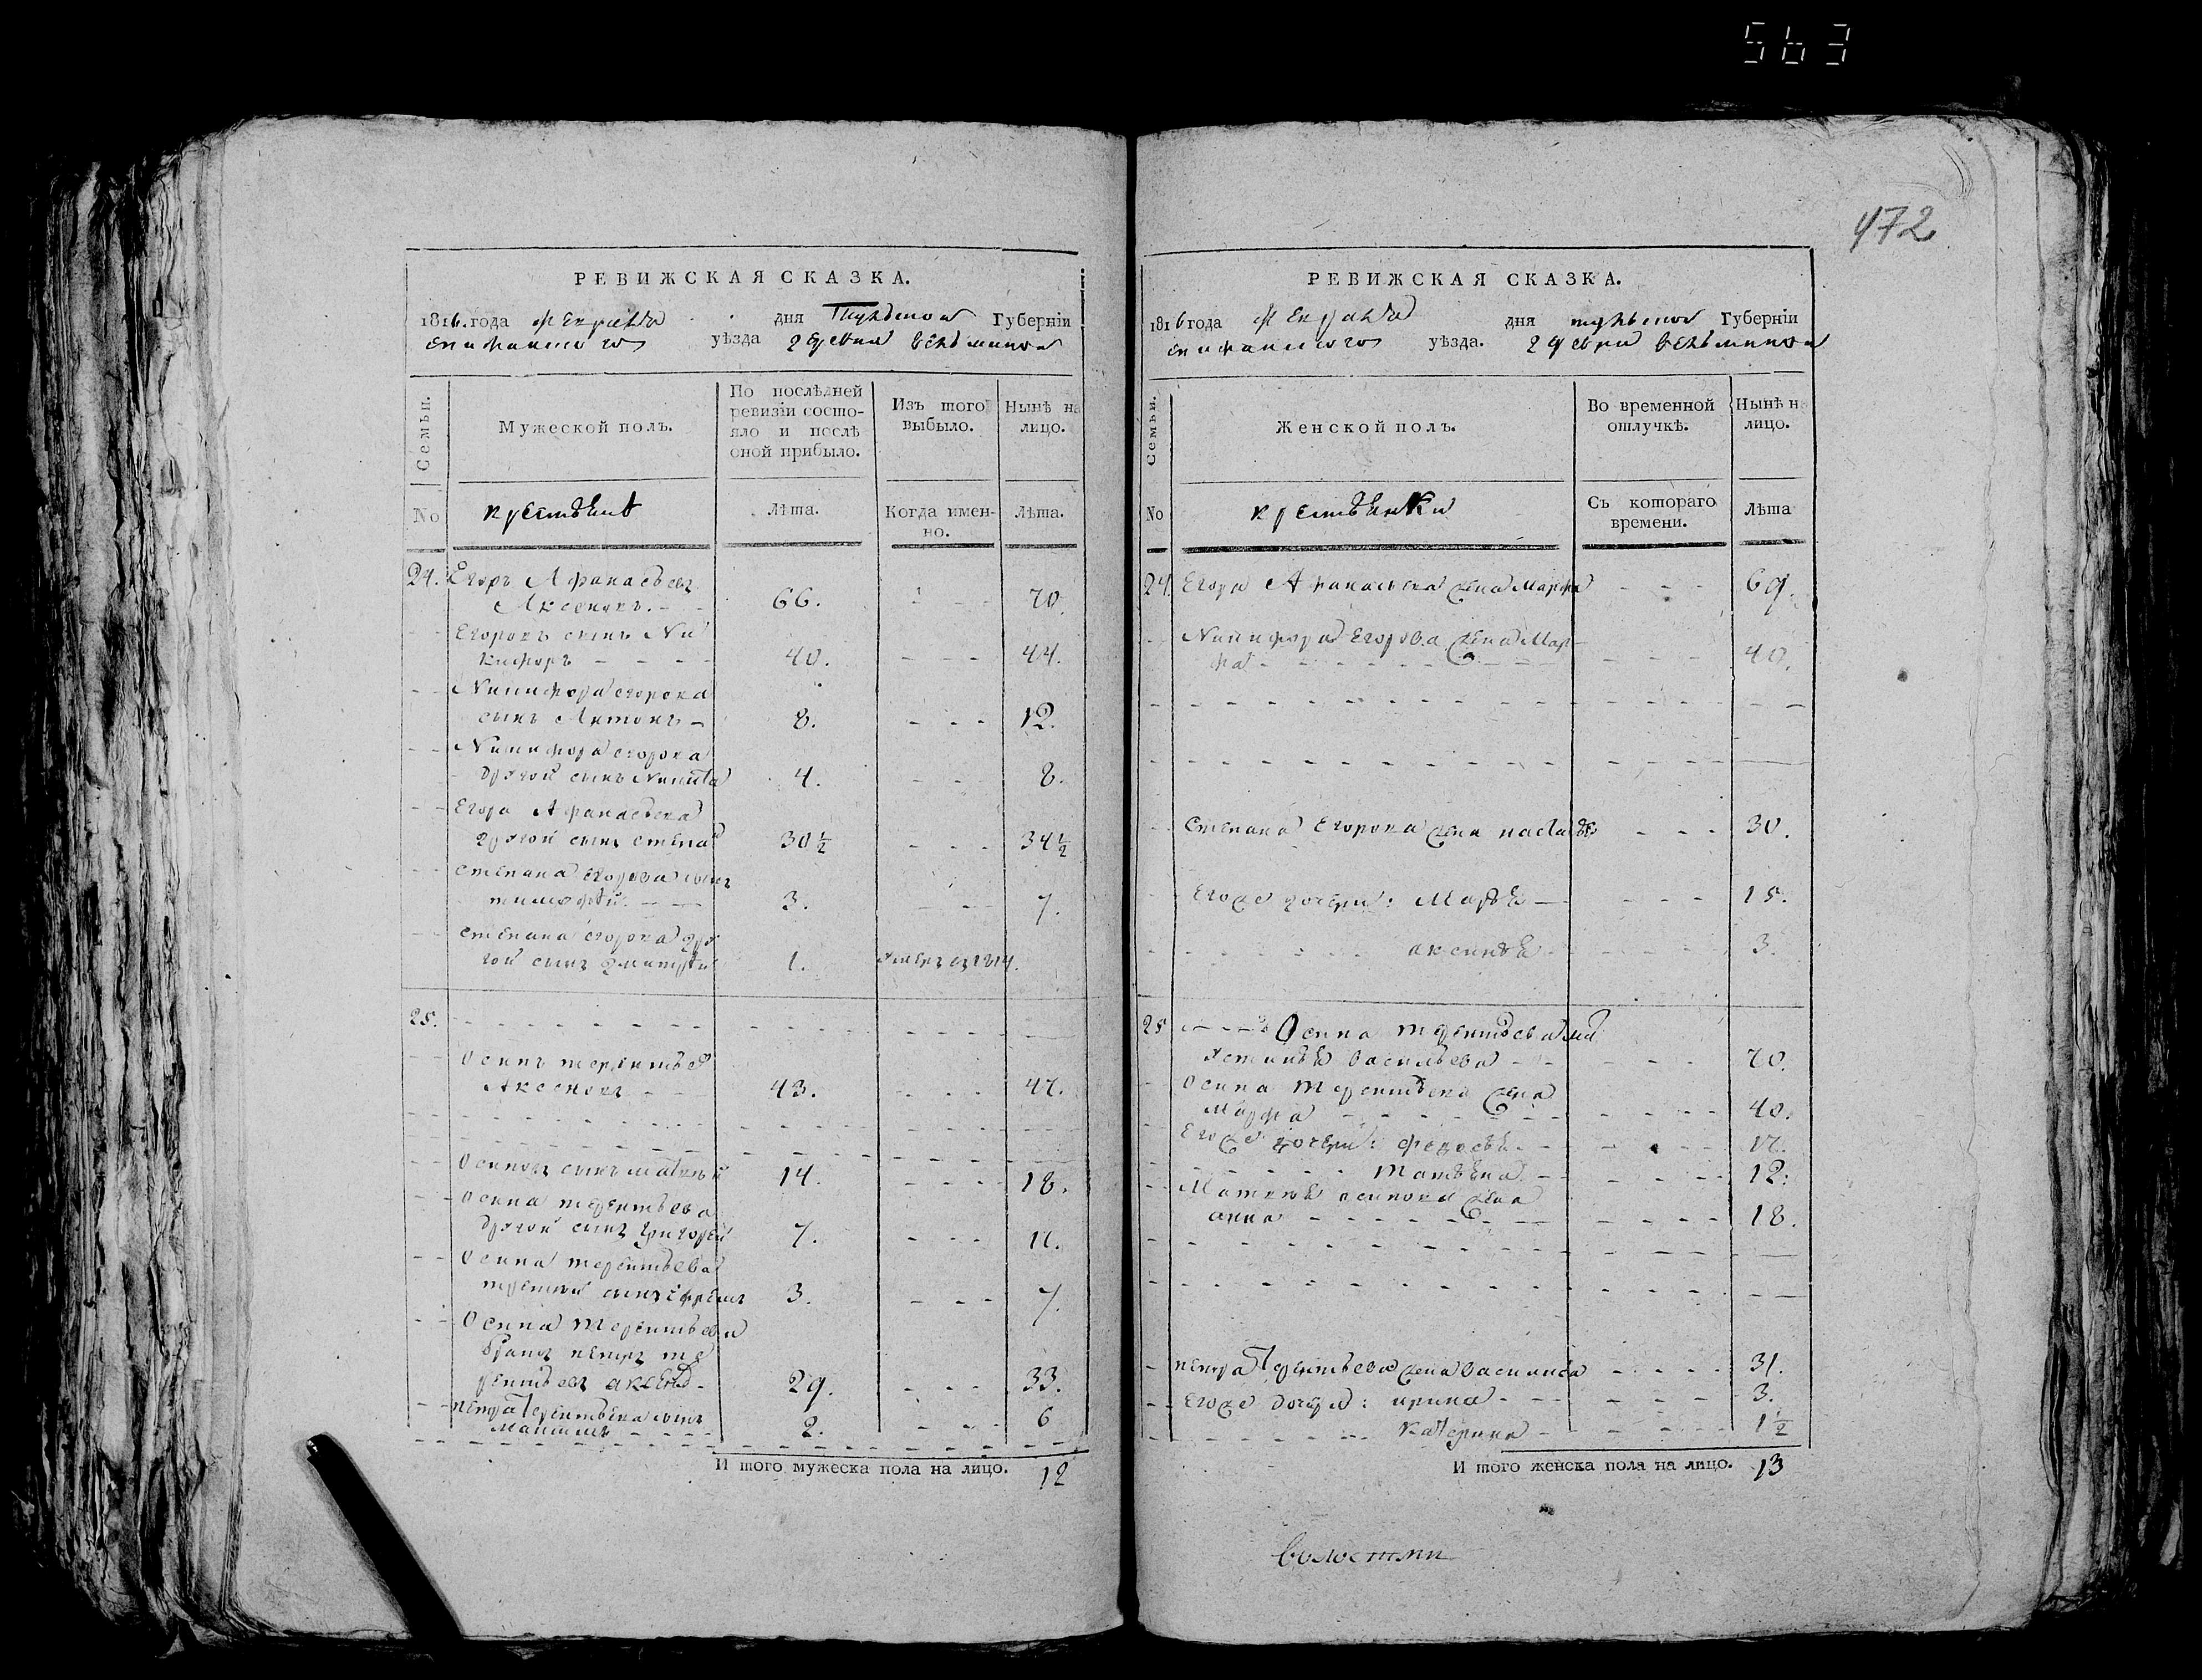 563
472
РЕВИЖСКАЯ СКАЗКА.
1816. года февраля дня Тульской Губерніи
епифанского уѣзда деревни вельминой
Семьи.
Мужеской полъ.
По послѣдней
ревизіи состо-
яло и послѣ
оной прибыло.
Изъ того
выбыло.
Нынѣ на
лицо.
No
крестьянѣ
Лѣта.
Когда имен-
но.
Лѣта.
24. Егоръ Афанасьевъ
Аксеновъ. 66. 70.
Егоровъ сынъ Ни
кифоръ 40. 44.
Никифора егорова
сынъ Антонъ 8. 12.
Никифора егорова
другой сынъ Никита 4. 8.
Егора Афанасьева
другой сынъ степан 30½ 34½
степана егорова сынъ
тимофей 3. 7.
степана егорова дру
гой сынъ дмитрѣй 1. умеръ въ 1814.
25.
Осипъ терентьев
Аксеновъ 43. 47.
Осиповъ сынъ матвѣй 14. 18.
Осипа терентьева
другой сынъ григорей 7. 11.
Осипа терентьева
третий сынъ ефремъ 3. 7.
Осипа терентьева
братъ петръ те
рентьевъ аксенов 29. 33.
петра Терентьева сынъ
2. 6
И того мужеска пола на лицо. 12
РЕВИЖСКАЯ СКАЗКА.
1816 года февраля дня тульской Губерніи
епифанского уѣзда. деревни вельминой
Семьи.
Женской полъ.
Во временной
отлучкѣ.
Нынѣ н
лицо.
No
крестьянки
Съ котораго
времени.
Лѣта
24. Егора Афанасьева жена Марфа 69.
Никифора Егорова жена Мар
фа 40.
степана Егорова жена 30.
Егоже дочери: Марья 15.
аксинья 3.
25 Осипа терентьева ма
устинья васильева 70.
Осипа терентьева жена
Марфа 40.
Егоже дочери: федосья 17.
татьяна 12.
Матвѣя осипова жена
анна 18.
петра Терентьева жена василиса 31.
Егоже дочери: ирина 3.
катерина 1½
И того женска пола на лицо. 13
волостнн